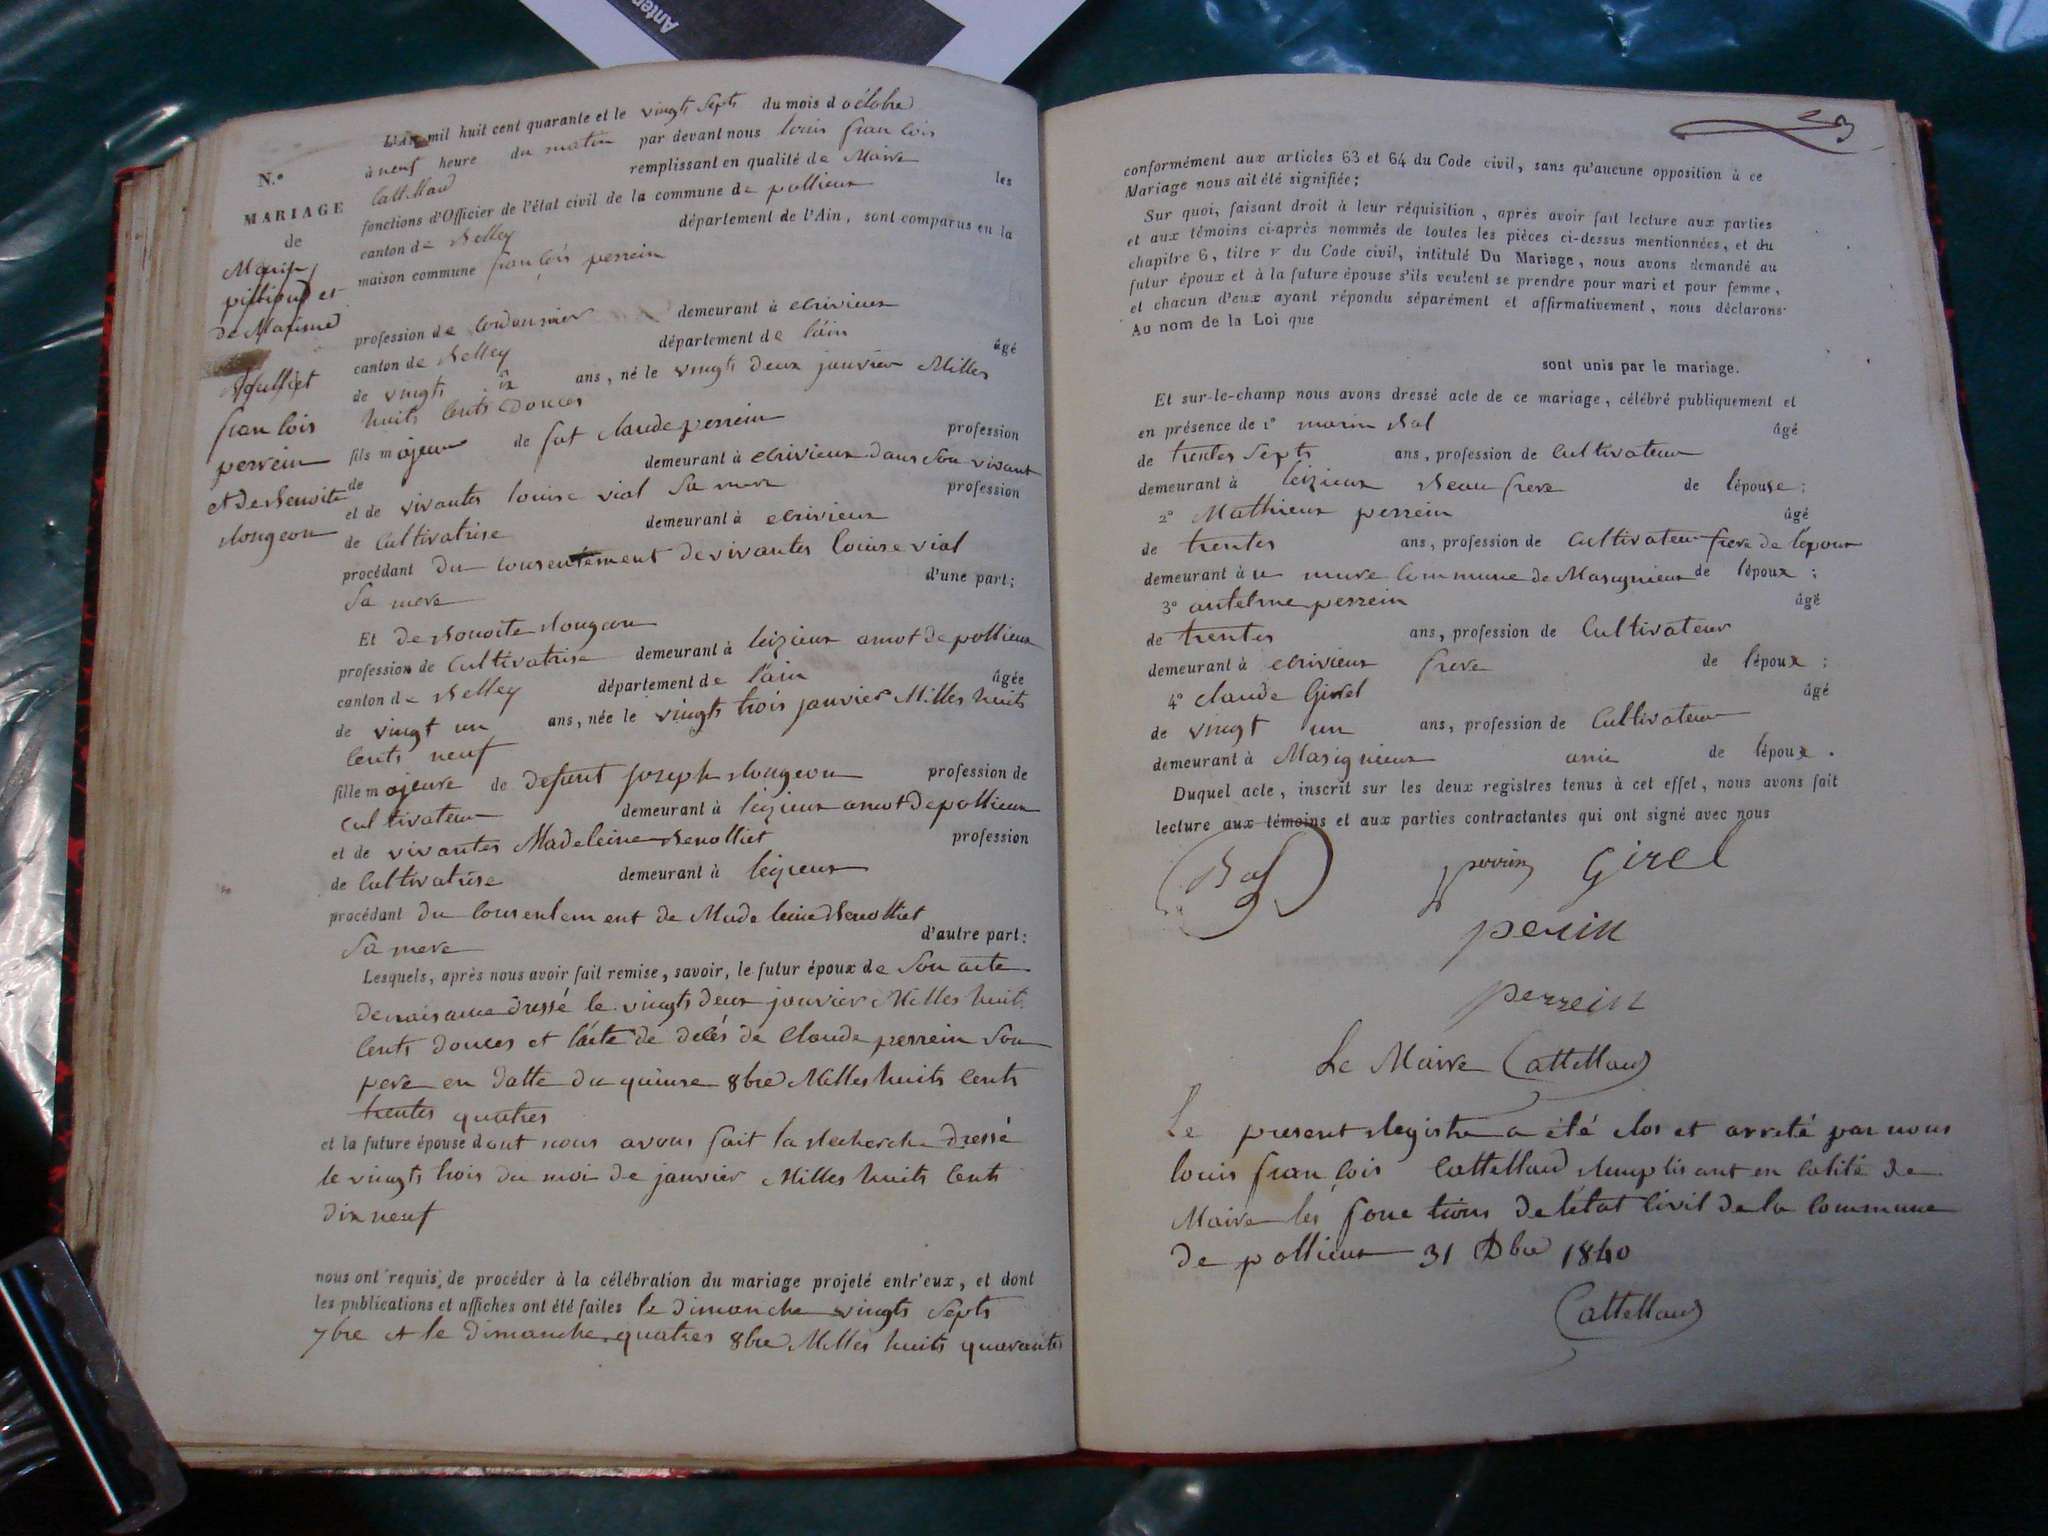 Anten
N.º
MARIAGE
de
et
de Maxime
françois
perrein
et de Benoite
Rougeon
L'An mil huit cent quarante et le vingts septs du mois d octobre
à neuf heure du matin par devant nous louis françois
Cattelland remplissant en qualité de Maire les
fonctions d'Officier de l'état civil de la commune de pollieux
canton de Belley département de l'Ain, sont comparus en la
maison commune françois perrein
profession de cordonnier demeurant à ecrivieux
canton de Belley département de l'ain âgé
de vingts ans, né le vingts deux janvier Milles
huits cents douces
fils majeur de fut claude perrein profession
de demeurant à ecrivieux dans son vivant
et de vivantes louise vial sa mere profession
de cultivatrise demeurant à ecrivieux
procédant du consentement de vivantes louise vial
sa mere d'une part;
Et de Benoite Rougeon
profession de cultivatrise demeurant à leizieux amot de pollieux
canton de Belley département de l'ain âgée
de vingt un ans, née le vingts trois janvier Milles huits
cents neuf
fille majeure de defunt joseph Rougeon profession de
cultivateur demeurant à leizieux amot de pollieux
et de vivantes Madeleine Benolliet profession
de cultivatrise demeurant à leizieux
procédant du consentement de Madeleine Benolliet
sa mere d'autre part:
Lesquels, après nous avoir fait remise, savoir, le futur époux de son acte
de naisance dressé le vingts deux janvier Milles huit
cents douces et l'acte de décés de claude perrein son
pere en datte du quinse 8bre Milles huits cents
trentes quatres
et la future épouse dont nous avons fait la Recherche dressé
le vingts trois du moi de janvier Milles huits cents
dix neuf
nous ont requis de procéder à la célébration du mariage projeté entr'eux, et dont
les publications et affiches ont été faites le dimanche vingts septs
7bre et le dimanche quatres 8bre Milles huits quarantes
conformément aux articles 63 et 64 du Code civil, sans qu'aucune opposition à ce
Mariage nous ait été signifiée;
Sur quoi, faisant droit à leur réquisition, après avoir fait lecture aux parties
et aux témoins ci-après nommés de toutes les pièces ci-dessus mentionnées, et du
chapitre 6, titre v du Code civil, intitulé Du Mariage, nous avons demandé au
futur époux et à la future épouse s'ils veulent se prendre pour mari et pour femme,
et chacun d'eux ayant répondu séparément et affirmativement, nous déclarons
Au nom de la Loi que
sont unis par le mariage.
Et sur-le-champ nous avons dressé acte de ce mariage, célébré publiquement et
en présence de 1º marin Bal âgé
de trentes septs ans, profession de cultivateur
demeurant à leizieux Beau frere de l'épouse;
2º Mathieux perrein âgé
de trentes ans, profession de cultivateur frere de l'epoux
demeurant à u mure commune de Masignieux de l'époux;
3º antelme perrein âgé
de trentes ans, profession de cultivateur
demeurant à ecrivieux frere de l'époux;
4º claude Girel âgé
de vingt un ans, profession de cultivateur
demeurant à Masignieux ami de l'époux.
Duquel acte, inscrit sur les deux registres tenus à cet effet, nous avons fait
lecture aux témoins et aux parties contractantes qui ont signé avec nous
Bal perrein Girel
perin
perrein
Le Maire Cattelland
Le present Registre a été clos et arreté par nous
louis françois Cattelland Remplisant en calité de
Maire les fonctions de l'état civil de la commune
de pollieux 31 Dbre 1840
Cattelland